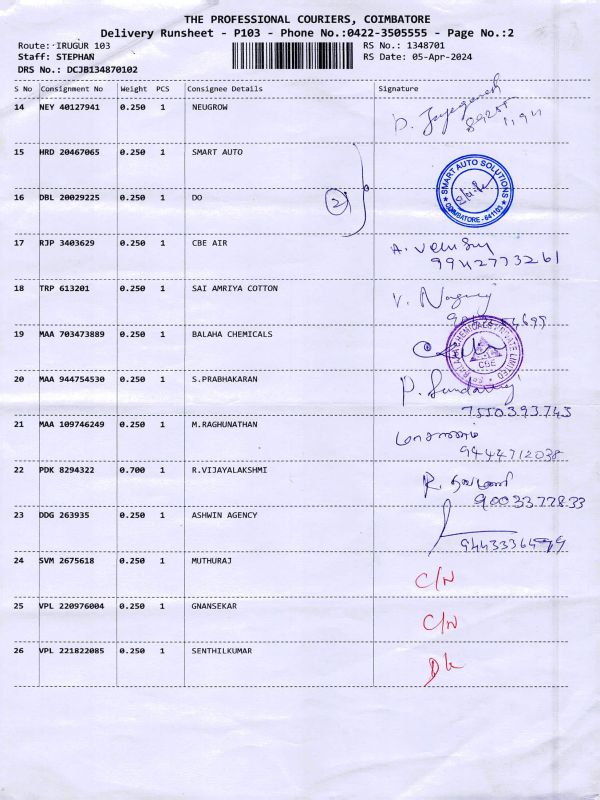 THE PROFESSIONAL COURIERS, COIMBATORE
Delivery Runsheet - P103 - Phone No.:0422-3505555 - Page No.:2
Route: IRUGUR 103 RS No.: 1348701
Staff: STEPHAN RS Date: 05-Apr-2024
DRS No.: DCJB134870102
S No Consignment No Weight PCS Consignee Details Signature
14 NEY 40127941 0.250 1 NEUGROW
15 HRD 20467065 0.250 1 SMART AUTO
SMART AUTO SOLUTIONS
COIMBATORE - 641103
16 DBL 20029225 0.250 1 DO 2
17 RJP 3403629 0.250 1 CBE AIR
9942773261
18 TRP 613201 0.250 1 SAI AMRIYA COTTON
19 MAA 703473889 0.250 1 BALAHA CHEMICALS
CBE
20 MAA 944754530 0.250 1 S.PRABHAKARAN
7550393743
21 MAA 109746249 0.250 1 M.RAGHUNATHAN
9444712038
22 PDK 8294322 0.700 1 R.VIJAYALAKSHMI
9003377833
23 DDG 263935 0.250 1 ASHWIN AGENCY
24 SVM 2675618 0.250 1 MUTHURAJ C/N
25 VPL 220976004 0.250 1 GNANSEKAR C/N
26 VPL 221822085 0.250 1 SENTHILKUMAR